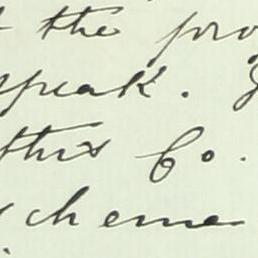 the pro
speak.
this Co.
scheme